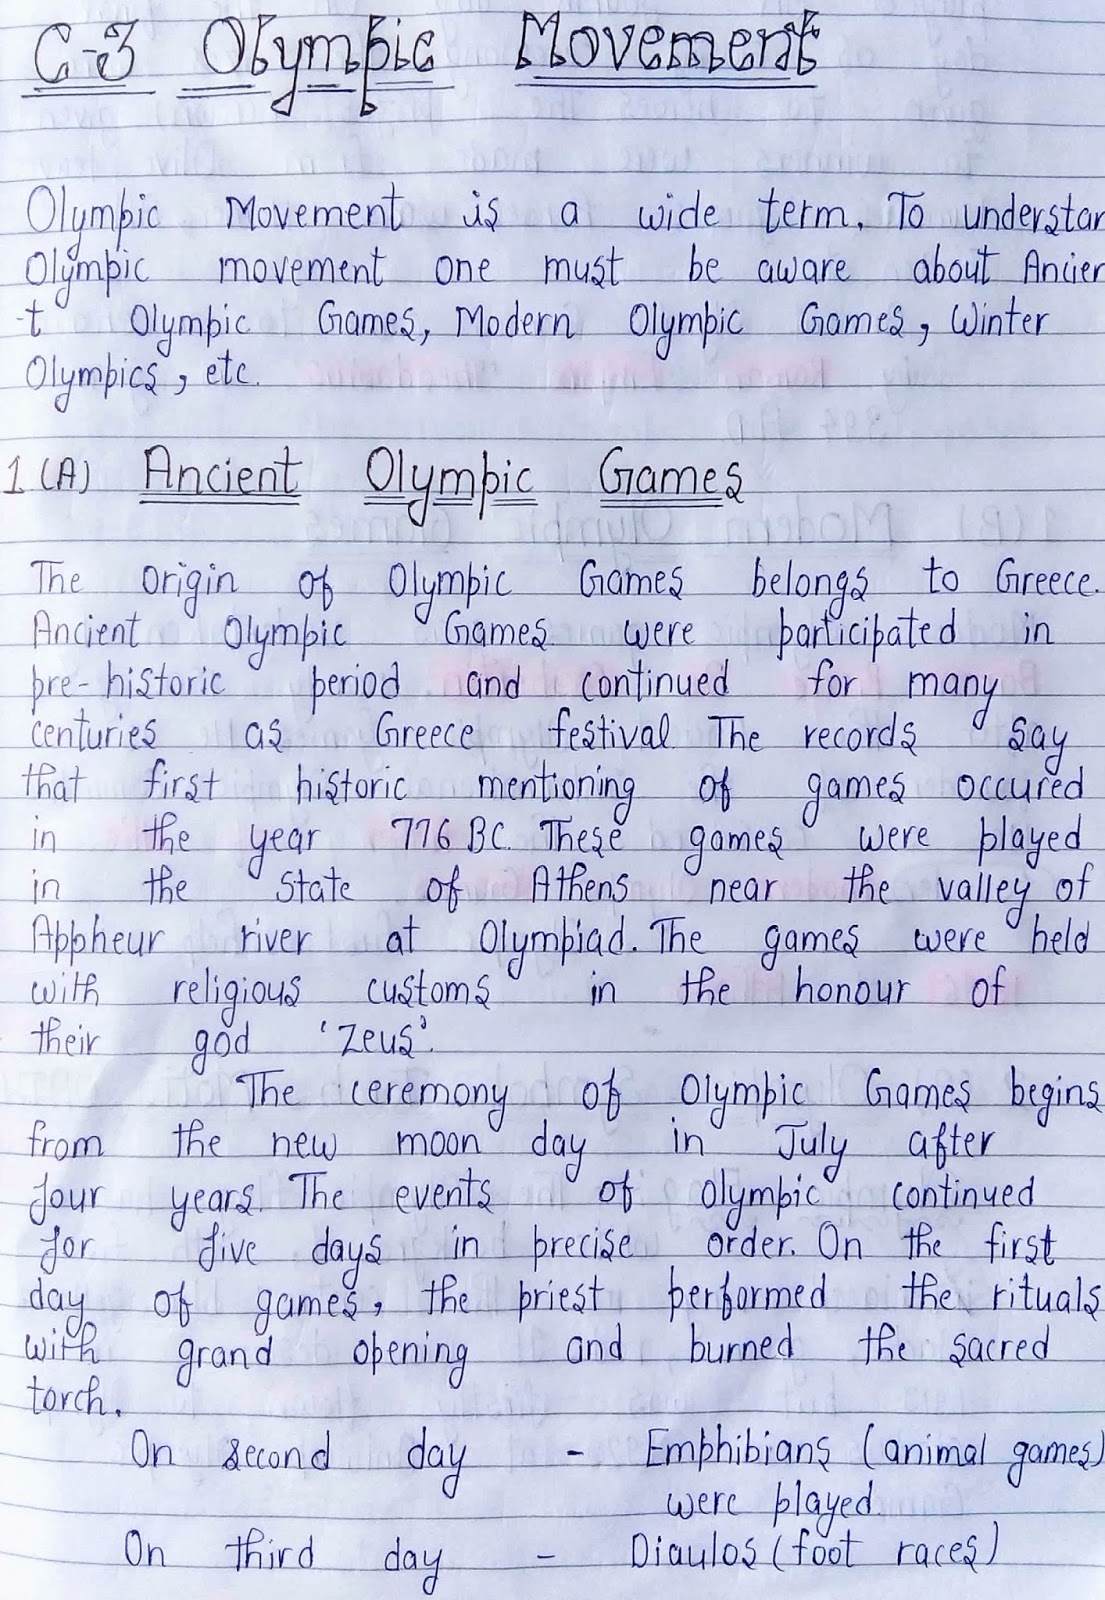 C-3 Olympic Movement
Olympic Movement is a wide term. To understan
Olympic movement one must be aware about Ancien
-t Olympic Games, Modern Olympic Games, Winter
Olympics, etc.
1 (A) Ancient Olympic Games
The origin of Olympic Games belongs to Greece.
Ancient Olympic Games were participated in
pre-historic period and continued for many
centuries as Greece festival. The records say
that first historic mentioning of games occured
in the year 776 BC. These games were played
in the State of Athens near the valley of
Appheur river at Olympiad. The games were held
with religious customs in the honour of
their god 'Zeus'.
The ceremony of Olympic Games begins
from the new moon day in July after
four years. The events of Olympic continued
for five days in precise order. On the first
day of games, the priest performed the rituals
with grand opening and burned the sacred
torch.
On second day - Emphibians (animal games)
were played.
On third day - Diaulos (foot races)